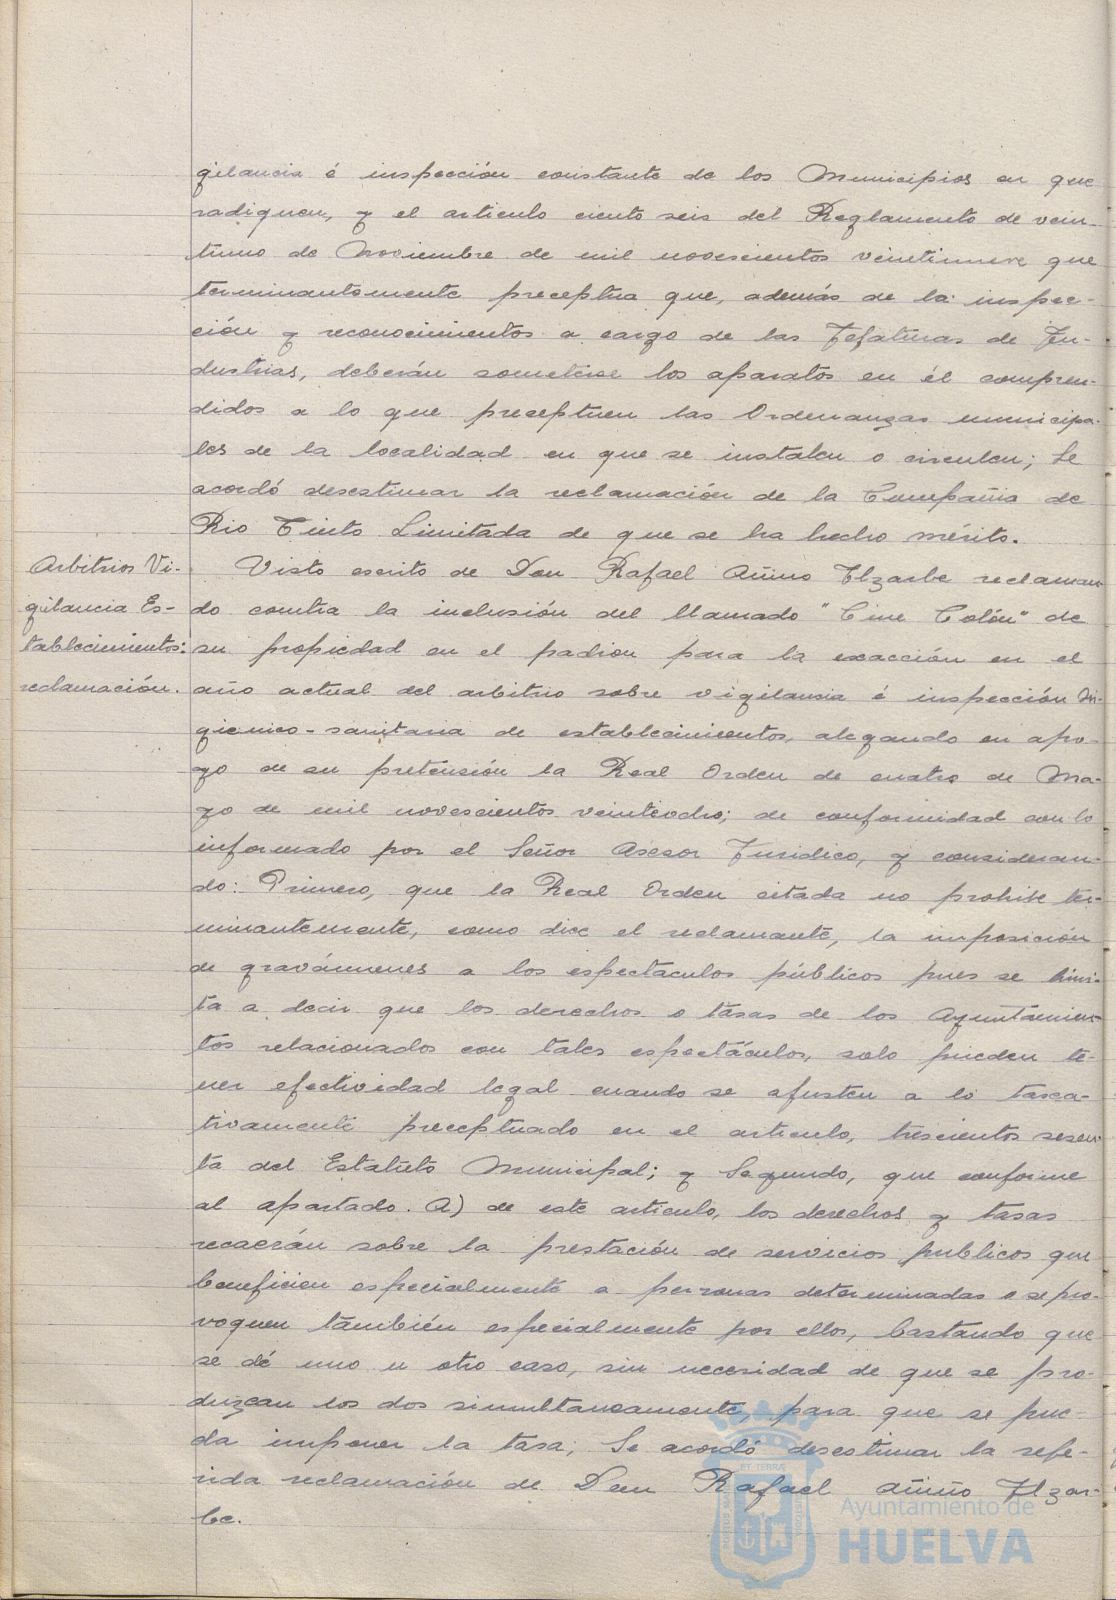 gilancia é inspección constante de los Municipios en que
radiquen, y el articulo ciento seis del Reglamento de vein-
tiuno de Noviembre de mil novescientos veintinueve que
terminantemente preceptua que, además de la inspec-
ción y reconocimientos a cargo de las Jefaturas de In-
dustrias, deberán someterse los aparatos en él compren-
didos a lo que preceptuen las Ordenanzas municipa-
les de la localidad en que se instalen o circulen; Se
acordó desestimar la reclamación de la Compañia de
Rio Tinto Limitada de que se ha hecho mérito.
Arbitrios Vi-
gilancia Es-
tablecimientos:
reclamación.
Visto escrito de Don Rafael Aúino Ilzarbe reclaman-
do contra la inclusión del llamado "Cine Colón" de
su propiedad en el padron para la exacción en el
año actual del arbitrio sobre vigilancia é inspección hi-
gienico-sanitaria de establecimientos, alegando en apo-
yo de su pretensión la Real Orden de cuatro de Ma-
yo de mil novescientos veintiocho; de conformidad con lo
informado por el Señor Asesor Juridico, y consideran-
do: Primero, que la Real Orden citada no prohibe ter-
minantemente, como dice el reclamante, la imposición
de gravámenes a los espectaculos públicos pues se limi-
ta a decir que los derechos o tasas de los Ayuntamien-
tos relacionados con tales espectáculos, solo pueden te-
ner efectividad legal cuando se ajusten a lo taxa-
tivamente preceptuado en el articulo, trescientos sesen-
ta del Estatuto Municipal; y Segundo, que conforme
al apartado. A) de este articulo, los derechos y tasas
recaerán sobre la prestación de servicios publicos que
beneficien especialmente a personas determinadas o se pro-
voquen también especialmente por ellos, bastando que
se dé uno u otro caso, sin necesidad de que se pro-
duzcan los dos simultaneamente, para que se pue-
da imponer la tasa; Se acordó desestimar la refe-
rida reclamación de Don Rafael Aúiño Ilzar-
be.
Ayuntamiento de
HUELVA